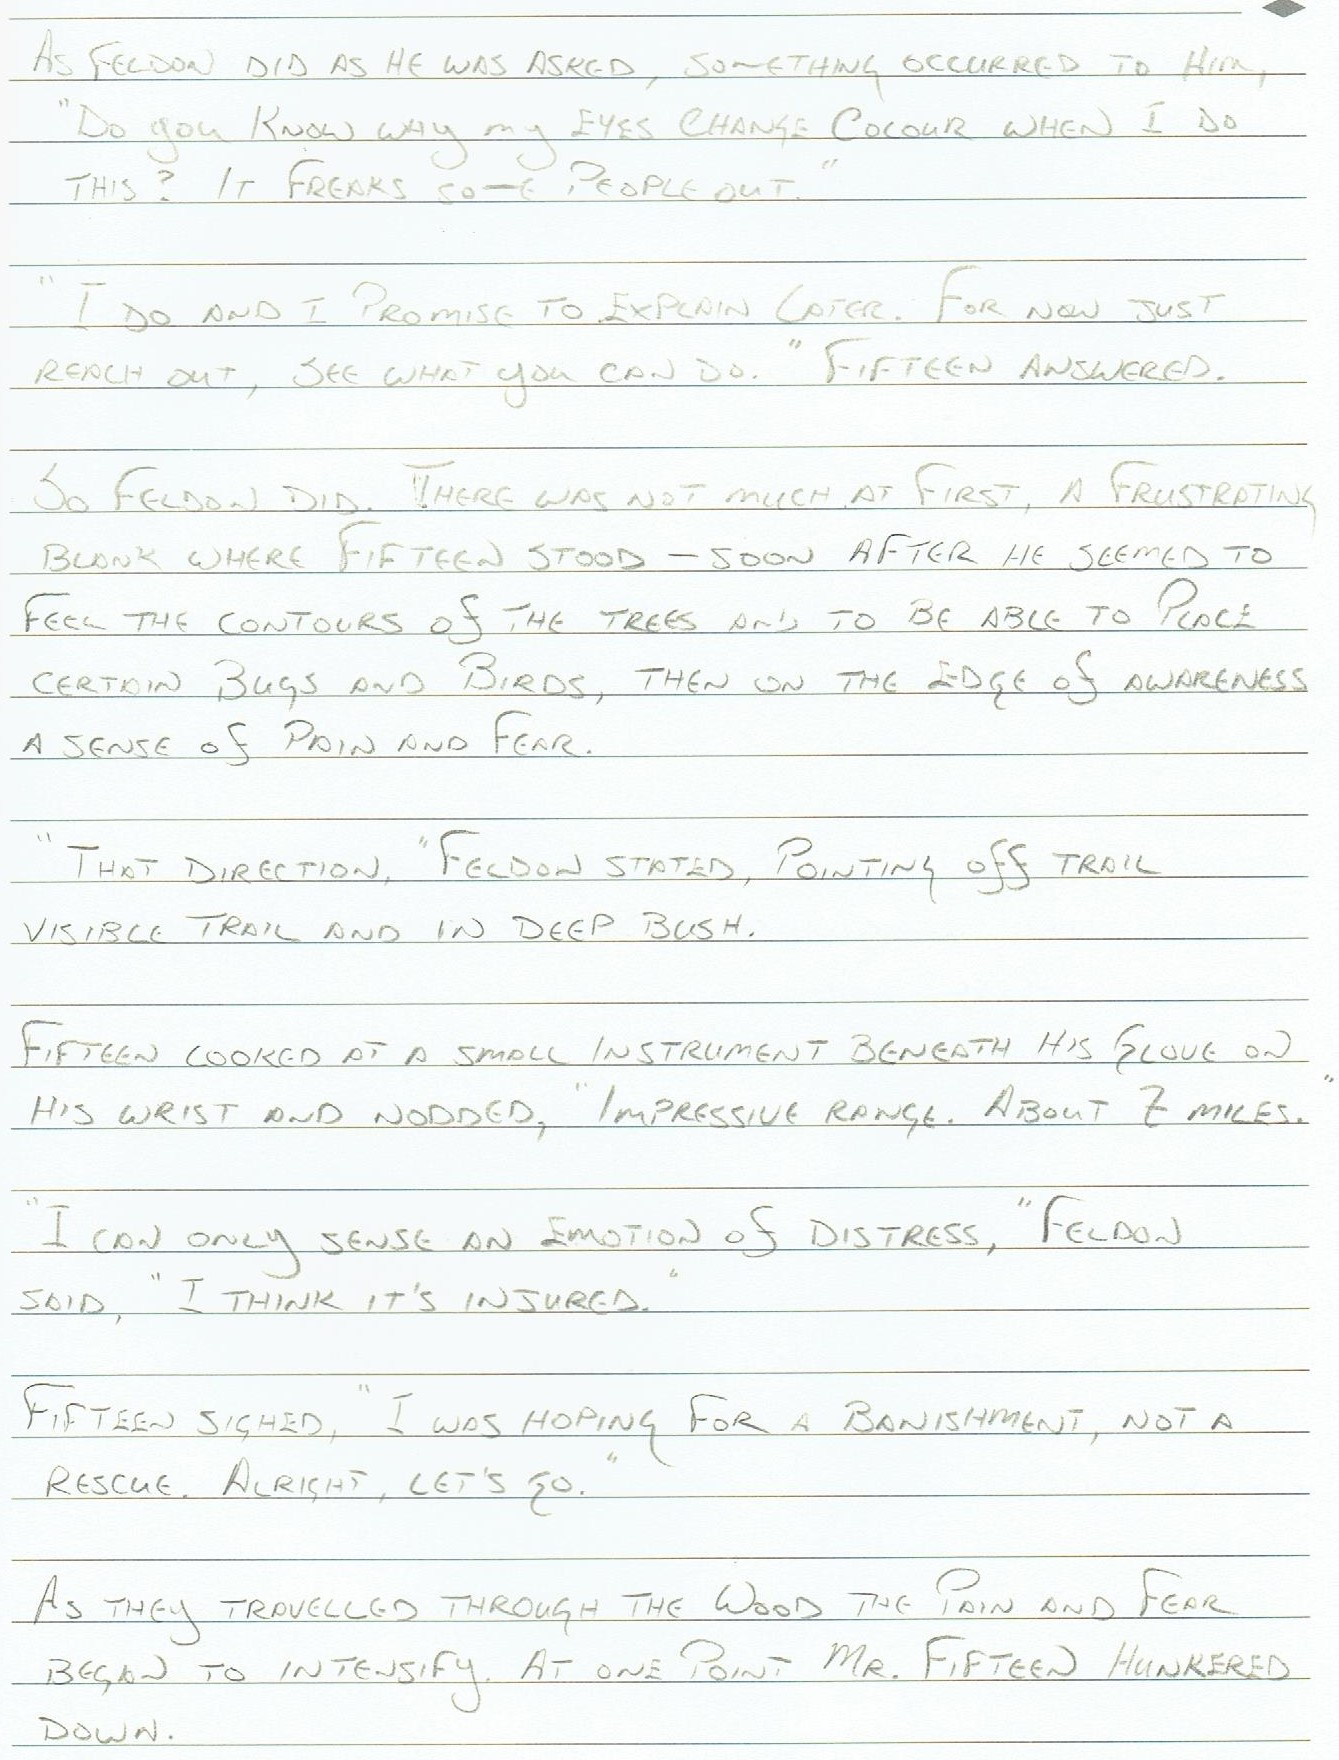 As Feldon did as he was asked, something occurred to him,
"Do you know way my eyes change colour when I do
this? It freaks some people out."
"I do and I promise to explain later. For now just
reach out, see what you can do." Fifteen answered.
So Feldon did. There was not much at first, a frustrating
blank where Fifteen stood – soon after he seemed to
feel the contours of the trees and to be able to place
certain bugs and birds, then on the edge of awareness
a sense of pain and fear.
"That direction," Feldon stated, pointing off trail
visible trail and in deep bush.
Fifteen looked at a small instrument beneath his glove on
his wrist and nodded, "Impressive range. About 7 miles."
"I can only sense an emotion of distress," Feldon
said, "I think it's injured."
Fifteen sighed, "I was hoping for a banishment, not a
rescue. Alright, let's go."
As they travelled through the wood the pain and fear
began to intensify. At one point Mr. Fifteen hunkered
down.